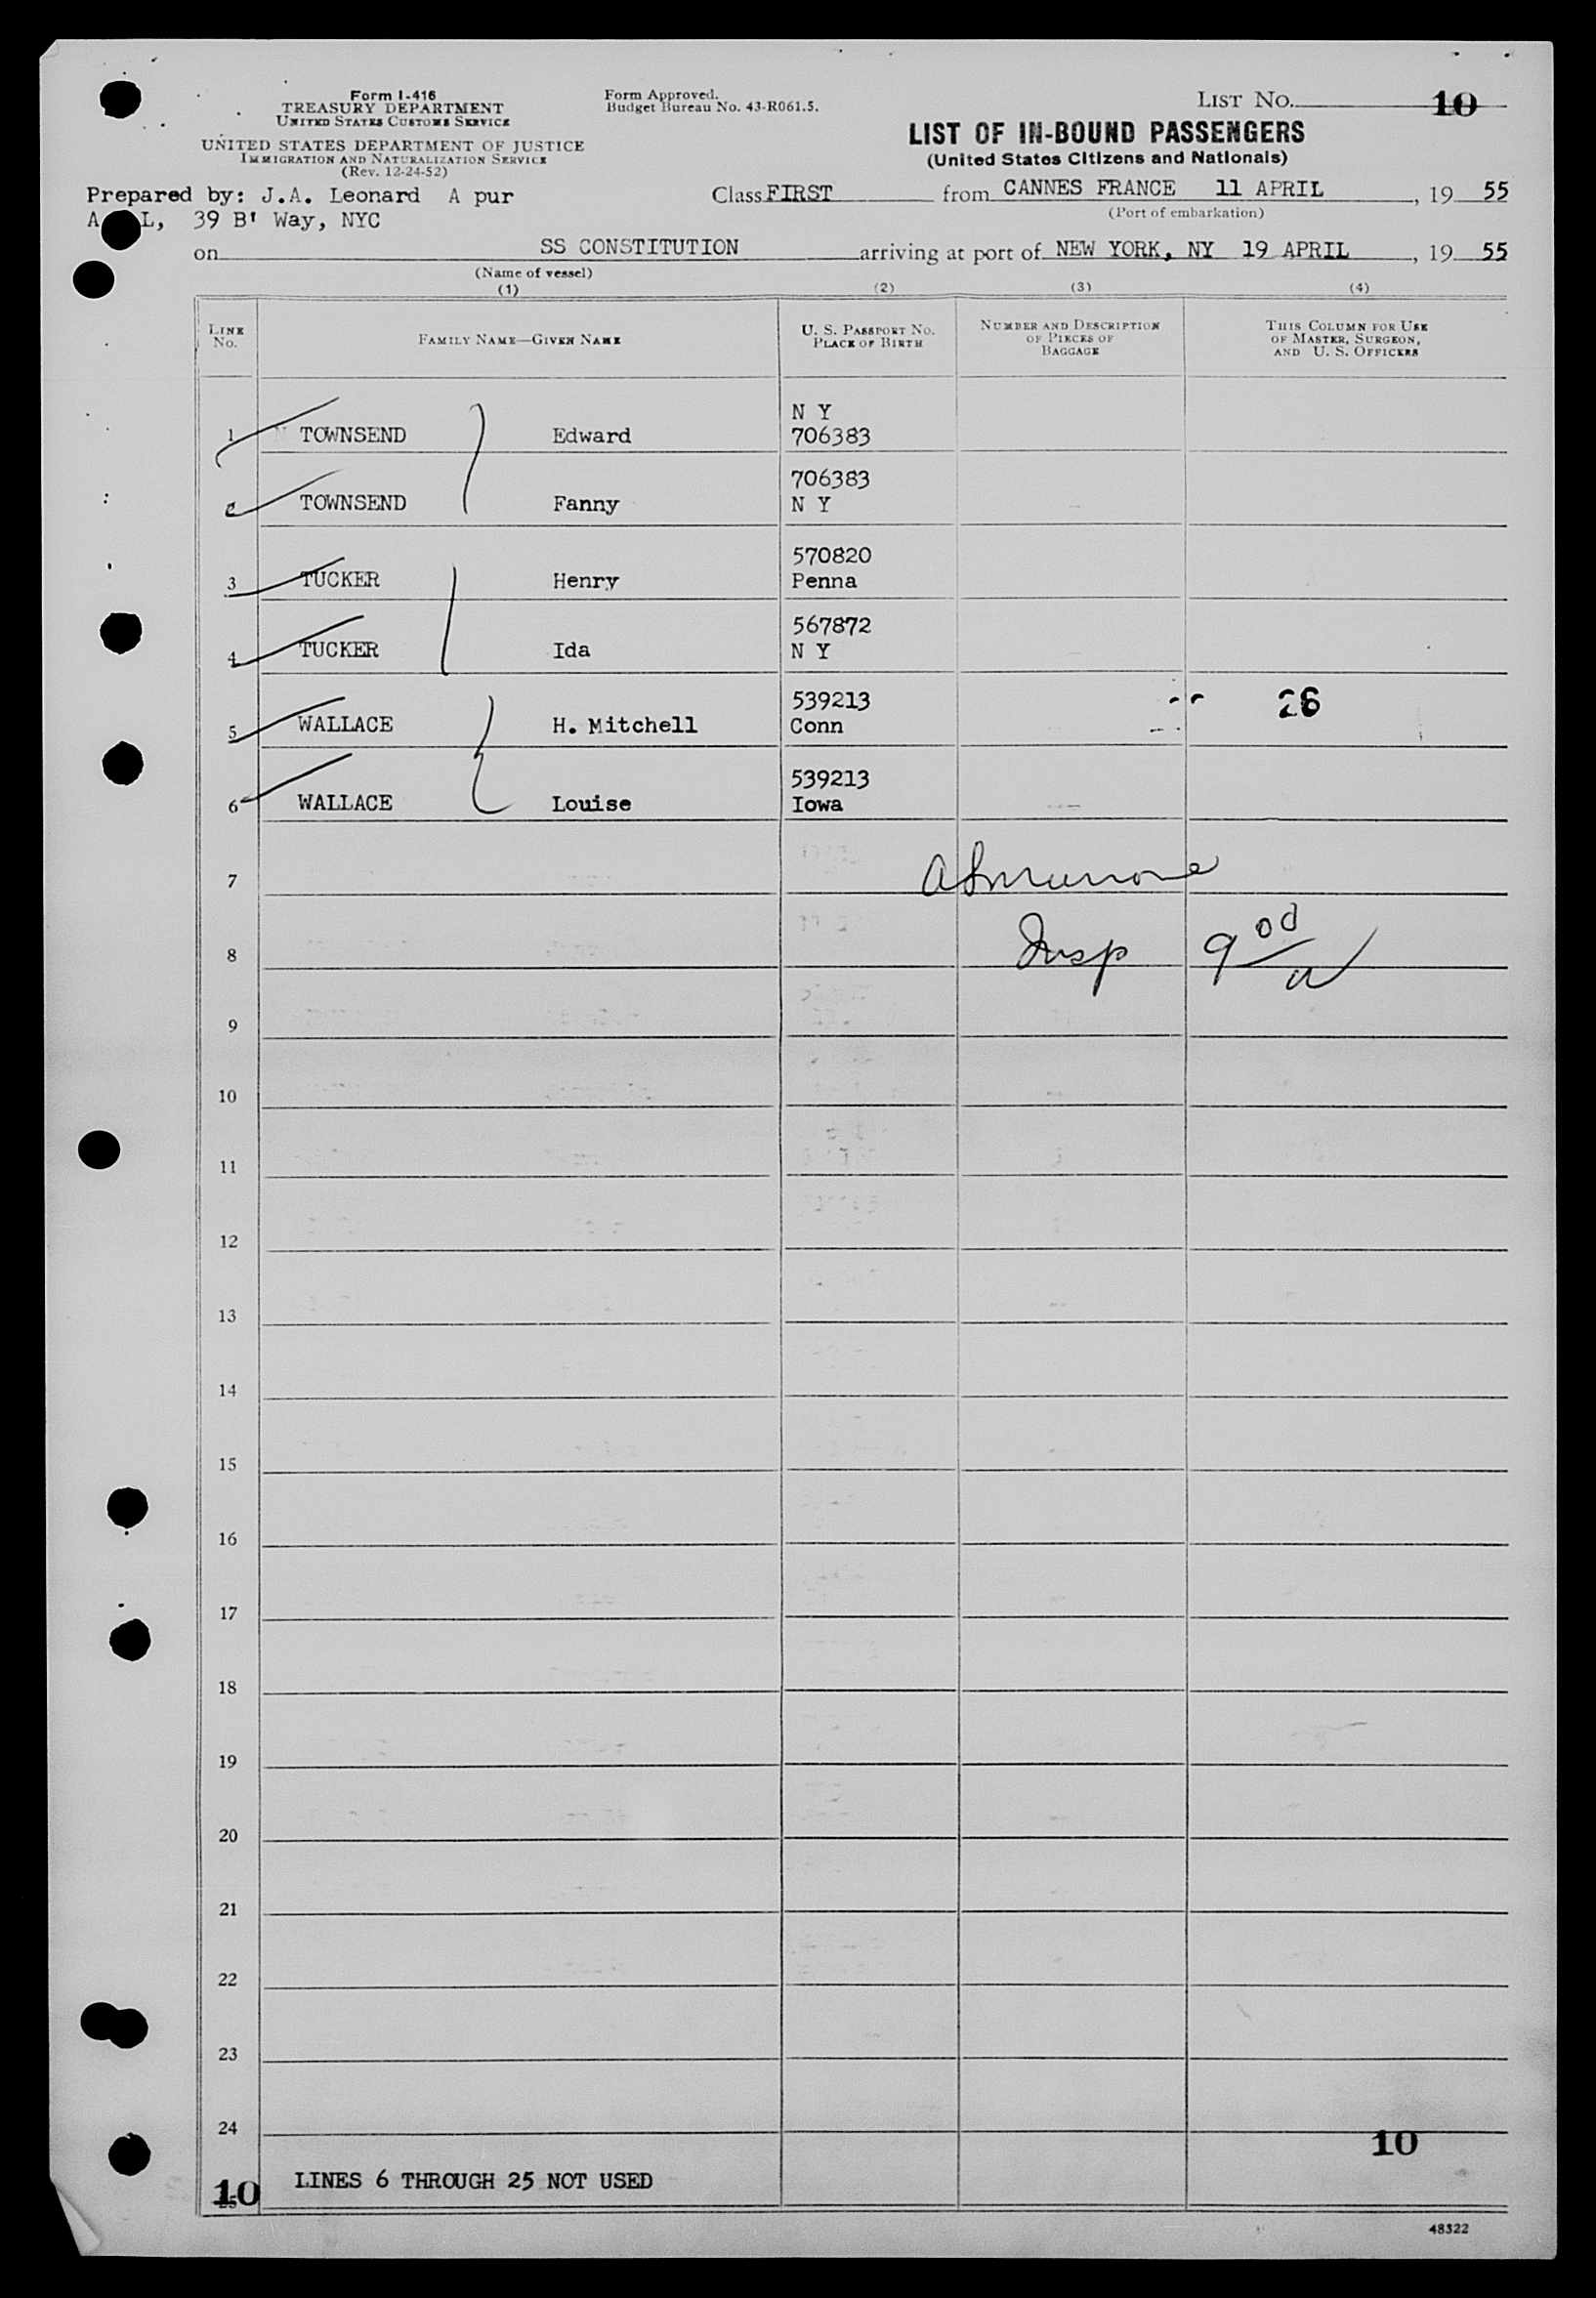 Form I-416
TREASURY DEPARTMENT
UNITED STATES CUSTOMS SERVICE
UNITED STATES DEPARTMENT OF JUSTICE
IMMIGRATION AND NATURALIZATION SERVICE
(Rev. 12-24-52)
Form Approved.
Budget Bureau No. 43-R061.5.
LIST NO. 10
LIST OF IN-BOUND PASSENGERS
(United States Citizens and Nationals)
Prepared by: J.A. Leonard A pur
A L, 39 B' Way, NYC
Class FIRST from CANNES FRANCE 11 APRIL, 19 55
(Port of embarkation)
on SS CONSTITUTION arriving at port of NEW YORK, NY 19 APRIL, 19 55
(Name of vessel)
(1) (2) (3) (4)
LINE NO.
FAMILY NAME—GIVEN NAME
U. S. PASSPORT NO.
PLACE OF BIRTH
NUMBER AND DESCRIPTION
OF PIECES OF
BAGGAGE
THIS COLUMN FOR USE
OF MASTER, SURGEON,
AND U. S. OFFICERS
N Y
1 TOWNSEND Edward 706383
706383
2 TOWNSEND Fanny N Y
570820
3 TUCKER Henry Penna
567872
4 TUCKER Ida N Y
539213 26
5 WALLACE H. Mitchell Conn
539213
6 WALLACE Louise Iowa
7
8 Insp 9 00 a
9
10
11
12
13
14
15
16
17
18
19
20
21
22
23
24
10
LINES 6 THROUGH 25 NOT USED
10
25
48322